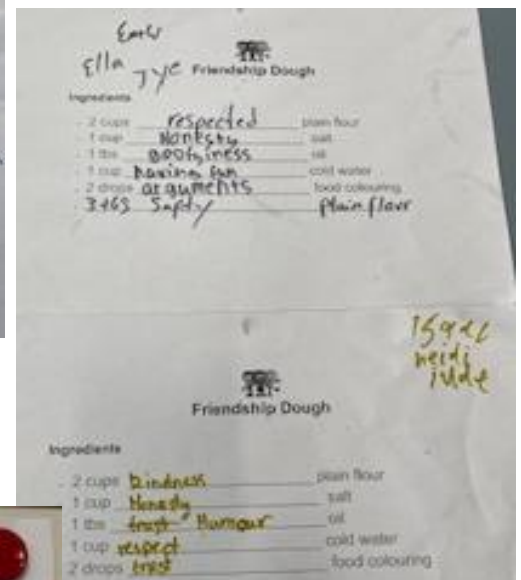 Ella Jye
Friendship Dough
Ingredients
2 cups respected plain flour
1 cup Honesty salt
1 tbs goofyiness oil
1 cup having fun cold water
2 drops arguments food colouring
plain flour
heidi
jude
Friendship Dough
Ingredients
2 cups kindness plain flour
1 cup Honesty salt
1 tbs trust Humour oil
1 cup respect cold water
2 drops trust food colouring